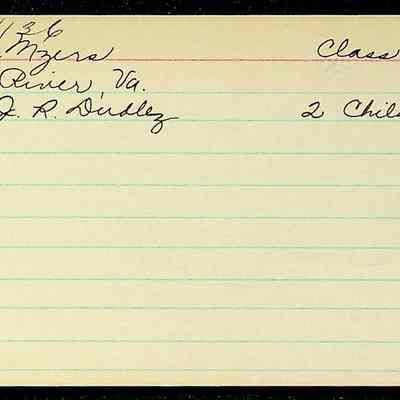 1136
Myers Class
River, Va.
J. R. Dudley 2 Chil